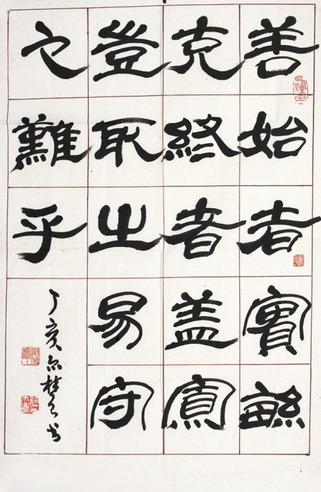 善始者實緐
克終者蓋寡
豈取之易守
之難乎
丁亥